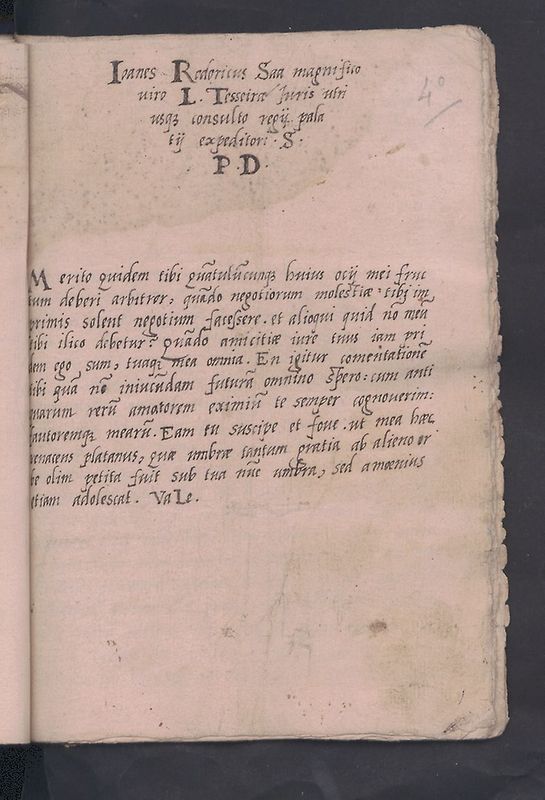 Ioanes Rodericus Saa magnifico
viro L. Tesseiræ Juris utri
usq3 consulto regij pala
tij expeditori. S.
P.D.
4º
Merito quidem tibi quātulūcunq3 huius ocij mei fruc
tum deberi arbitror, quādo negotiorum molestiæ tibi im
primis solent negotium facessere. et alioqui quid nō meū
tibi ilico debetur? Quādo amicitiæ iure tuus iam pri
dem ego sum, tuaq3 mea omnia. En igitur comentationē
tibi quā nō iniucūdam futurā omnino spero: cum anti
quarum rerū amatorem eximiū te semper cognouerim:
fautoremq3 mearū. Eam tu suscipe et foue. ut mea hæc
platanus, quæ umbræ tantum gratia ab alieno or
be olim petita fuit sub tua nūc umbra, sed amœnius
etiam adolescat. VaLe.